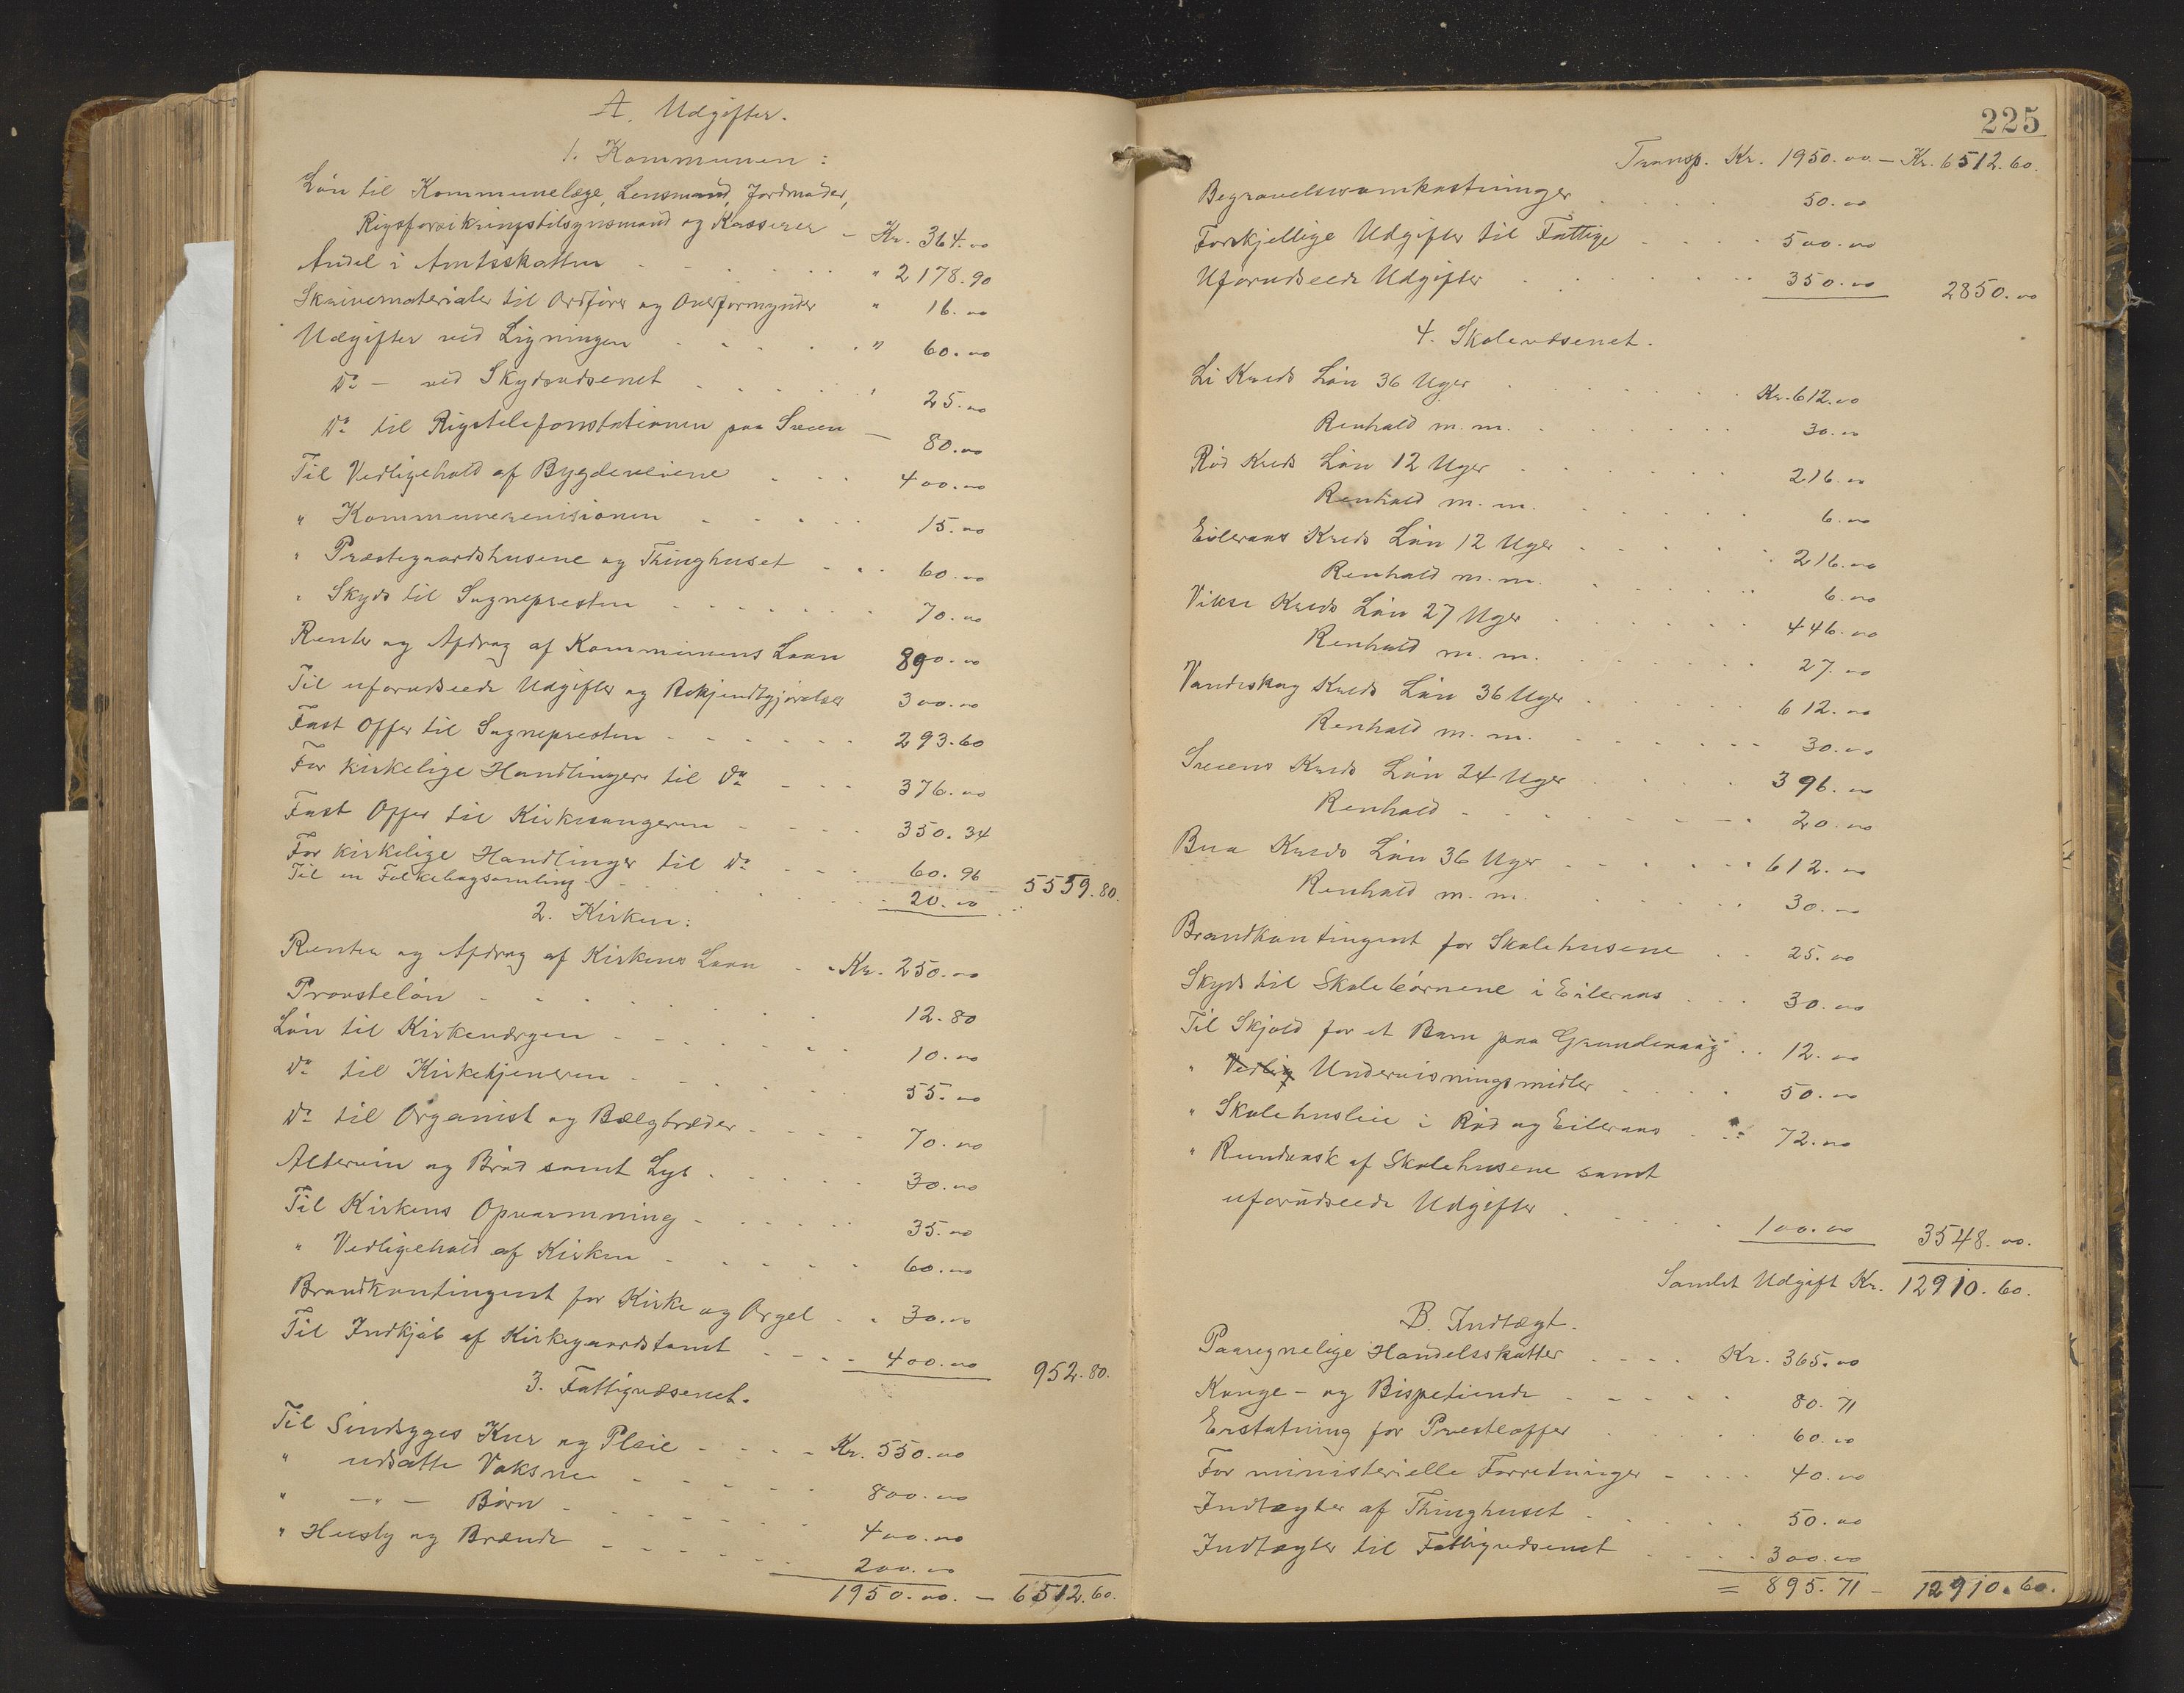 A. Udgifter.
1. Kommunen:
Løn til Kommunelæge, Lensmand, Jordmoder,
Rigsforsikringstilsynsmand og Kasserer - Kr. 364.00
Andel i Amtsskatten " 2178.90
Skrivematerialer til Ordfører og Overformynder " 16.00
Udgifter ved Ligningen " 60.00
Do - ved Skydsvæsenet " 25.00
Do til Rigstelefonstationen paa Sveen - 80.00
Til Vedligehold af Bygdeveiene 400.00
" Kommunerevisionen 15.00
" Præstegaardshusene og Thinghuset 60.00
" Skyds til Sognepresten 70.00
Renter og Afdrag af Kommunens Laan 890.00
Til uforudseede Udgifter og Bekjendtgjørelser 300.00
Fast Offer til Sognepresten 293.60
For kirkelige Handlinger til Do 376.00
Fast Offer til Kirkesangeren 350.34
For kirkelige Handlinger til Do 60.96
Til en Folkebogsamling 20.00 5559.80.
2. Kirken:
Renter og Afdrag af Kirkens Laan Kr. 250.00
Provsteløn 12.80
Løn til Kirkeværgen 10.00
Do til Kirketjeneren 55.00
Do til Organist og Bælgtræder 70.00
Altervin og Brød samt Lys 30.00
Til Kirkens Opvarmning 35.00
" Vedligehold af Kirken 60.00
Brandkontingent for Kirke og Orgel 30.00
Til Indkjøb af Kirkegaardstomt 400.00 952.80.
3. Fattigvæsenet.
Til Sindsyges Kur og Pleie Kr. 550.00
" udsatte Voksne 800.00
" -"- Børn 400.00
" Husly og Brænde 200.00
1950.00. - 6512.60.
225
Transp. Kr. 1950.00 - Kr. 6512.60.
Begravelsesomkostninger 50.00
Forskjellige Udgifter til Fattige 500.00
Uforudseede Udgifter 350.00 2850.00
4. Skolevæsenet.
Li Kreds Løn 36 Uger Kr. 612.00
Renhold m.m. 30.00
Rød Kreds Løn 12 Uger 216.00
Renhold m.m. 6.00
Eileraas Kreds Løn 12 Uger 216.00
Renhold m.m. 6.00
Vikse Kreds Løn 27 Uger 446.00
Renhold m.m. 27.00
Vandaskog Kreds Løn 36 Uger 612.00
Renhold m.m. 30.00
Sveens Kreds Løn 24 Uger 396.00
Renhold 20.00
Bua Kreds Løn 36 Uger 612.00
Renhold m.m. 30.00
Brandkontingent for Skolehusene 25.00
Skyds til Skolebørnene i Eileraas 30.00
Til Skjold for et Barn paa Grundevaag 12.00
" Vedlig Undervisningsmidler 50.00
" Skolehusleie i Rød og Eileraas 72.00
" Rundvask af Skolehusene samt
uforudseede Udgifter 100.00 3548.00.
Samlet Udgift Kr. 12910.60.
B. Indtægt.
Paaregnelige Handelsskatter Kr. 365.00
Konge- og Bispetiende 80.71
Erstatning for Presteoffer 60.00
For ministerielle Forretninger 40.00
Indtægter af Thinghuset 50.00
Indtægter til Fattigvæsenet 300.00
= 895.71 - 12910.60.